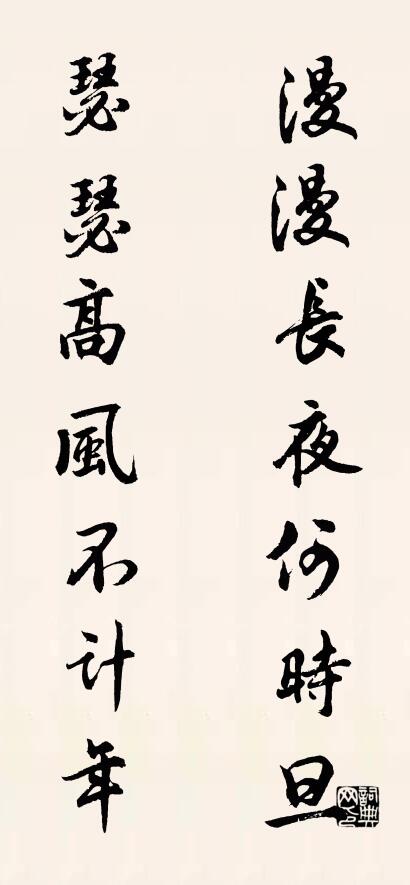 漫漫長夜何時旦
瑟瑟高風不計年
詞典网印